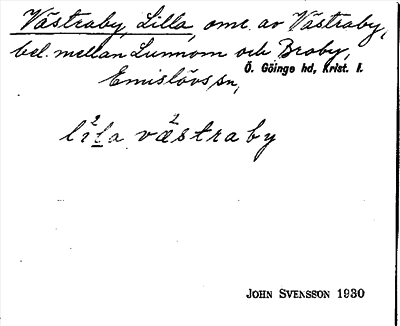 Västraby, Lilla, omr. av Västraby,
bel. mellan Lunnom och Broby,
Ö. Göinge hd, Krist. l.
Emislövs sn,
li²l̲a væ²straby
JOHN SVENSSON 1930